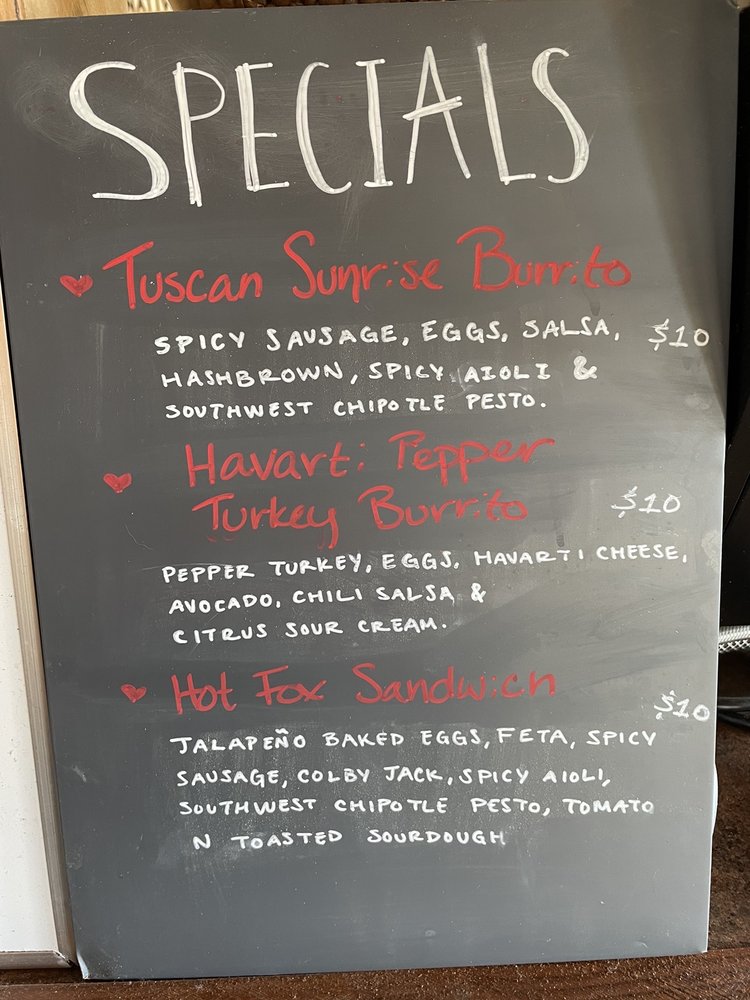 SPECIALS
Tuscan Sunrise Burrito
SPICY SAUSAGE, EGGS, SALSA, $10
HASHBROWN, SPICY AIOLI &
SOUTHWEST CHIPOTLE PESTO.
Havarti Pepper
Turkey Burrito $10
PEPPER TURKEY, EGGS, HAVARTI CHEESE,
AVOCADO, CHILI SALSA &
CITRUS SOUR CREAM.
Hot Fox Sandwich
$10
JALAPEÑO BAKED EGGS, FETA, SPICY
SAUSAGE, COLBY JACK, SPICY AIOLI,
SOUTHWEST CHIPOTLE PESTO, TOMATO
N TOASTED SOURDOUGH